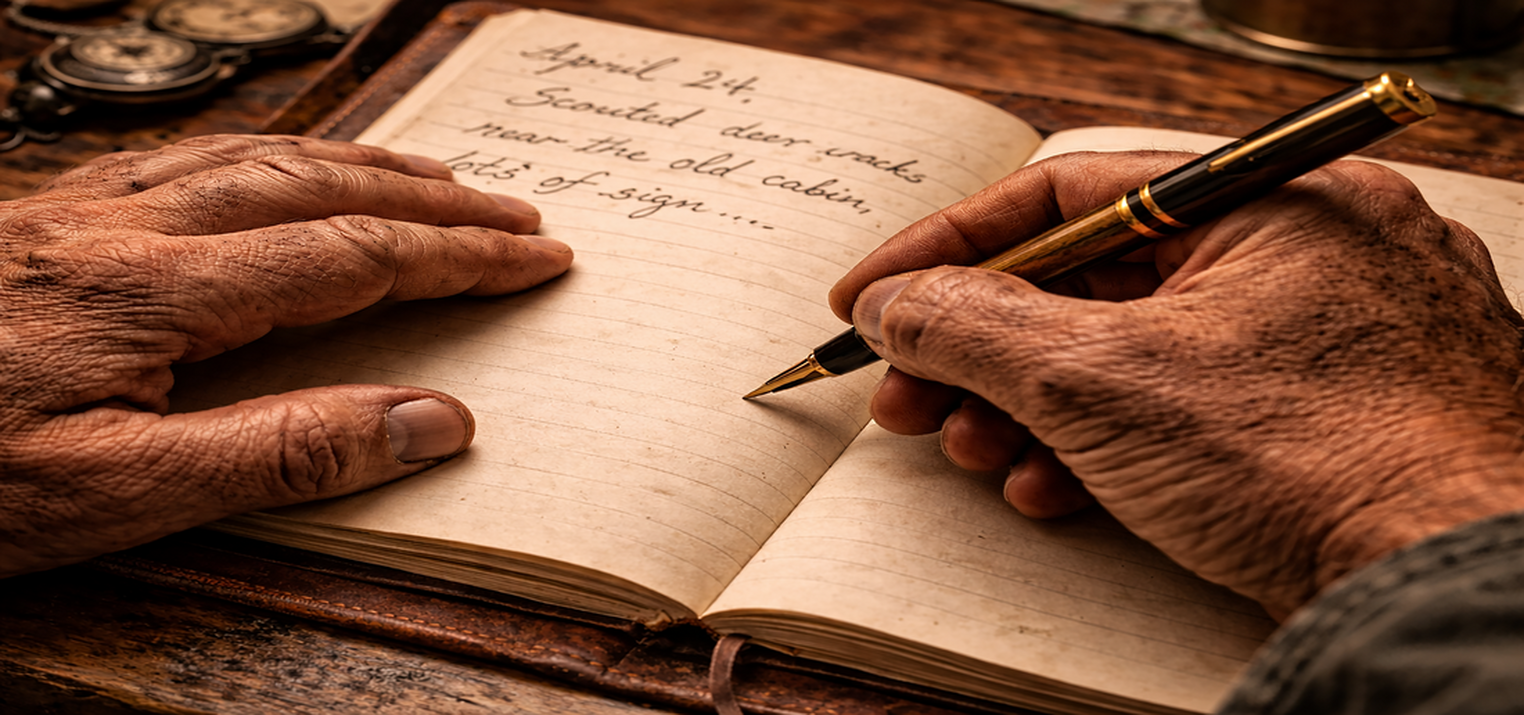 April 24.
Scouted deer wracks
near the old cabin,
lots of sign ....